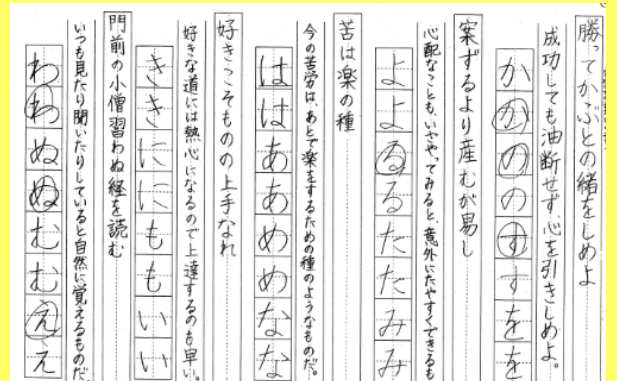 勝ってかぶとの緒をしめよ
成功しても油断せず、心を引きしめよ。
かかののすすをを
案ずるより産むが易し
心配なことも、いややってみると、意外にたやすくできるも
よよるるたたみみ
苦は楽の種
今の苦労は、あとで楽をするための種のようなものだ。
ははああめめなな
好きこそものの上手なれ
好きな道には熱心になるので上達するのも早い。
ききににももいい
門前の小僧習わぬ経を読む
いつも見たり聞いたりしていると自然に覚えるものだ。
わわぬぬむむええ